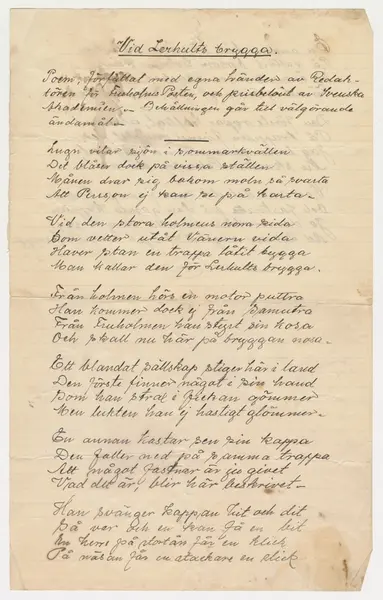 Vid Lerhults brygga.
Poem, författat med egna händer av Redak-
tören för Fruholms Posten, och prisbelönt av Svenska
Akademien. – Behållningen går till välgörande
ändamål. –
Lugn vilar sjön i sommarkvällen
Det blåser dock på vissa ställen
Månen drar sig bakom moln så svarta
Att Persson ej kan se på karta. –
Vid den stora holmens norra sida
Som vetter utåt Vänern vida
Haver stan en trappa låtit bygga
Man kallar den för Lerhults brygga.
Från holmen hörs en motor puttra
Han kommer dock ej från
Från Fruholmen han styrt sin kosa
Och skall nu här på bryggan nosa. –
Ett blandat sällskap stiger här i land
Den förste finner något i sin hand
Som han strax i fickan gömmer
Men lukten han ej hastigt glömmer. –
En annan kastar sen sin kappa
Den faller ned på samma trappa
Att något fastnar är ju givet
Vad det är, blir här beskrivet. –
Han svänger kappan hit och dit
Så var och en kan få en bit
En herre på stortån får en klick
På näsan får en stackare en slick